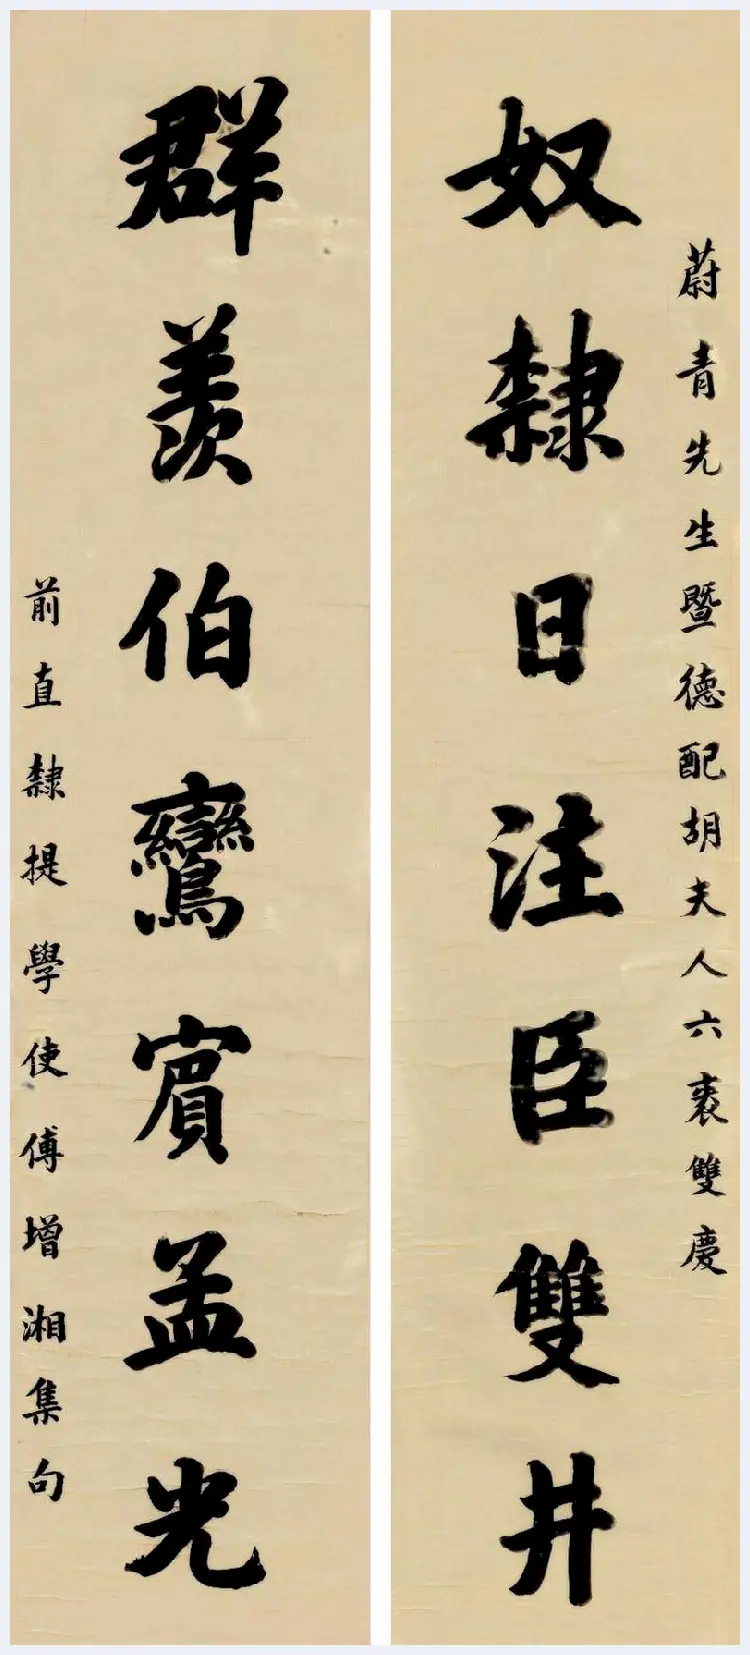 蔚青先生暨德配胡夫人六袠雙慶
奴隸日注臣雙井
群羨伯鸞賓孟光
前直隸提學使傅增湘集句